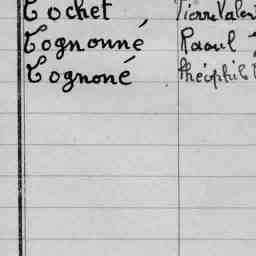 Cochet Pierre Valen
Cognonné Raoul
Cognoné Théophile